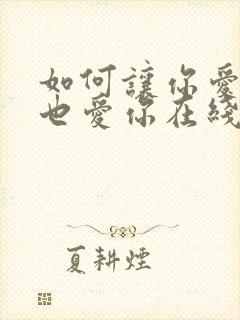 如何讓你愛
也愛你在綫
夏耕煙